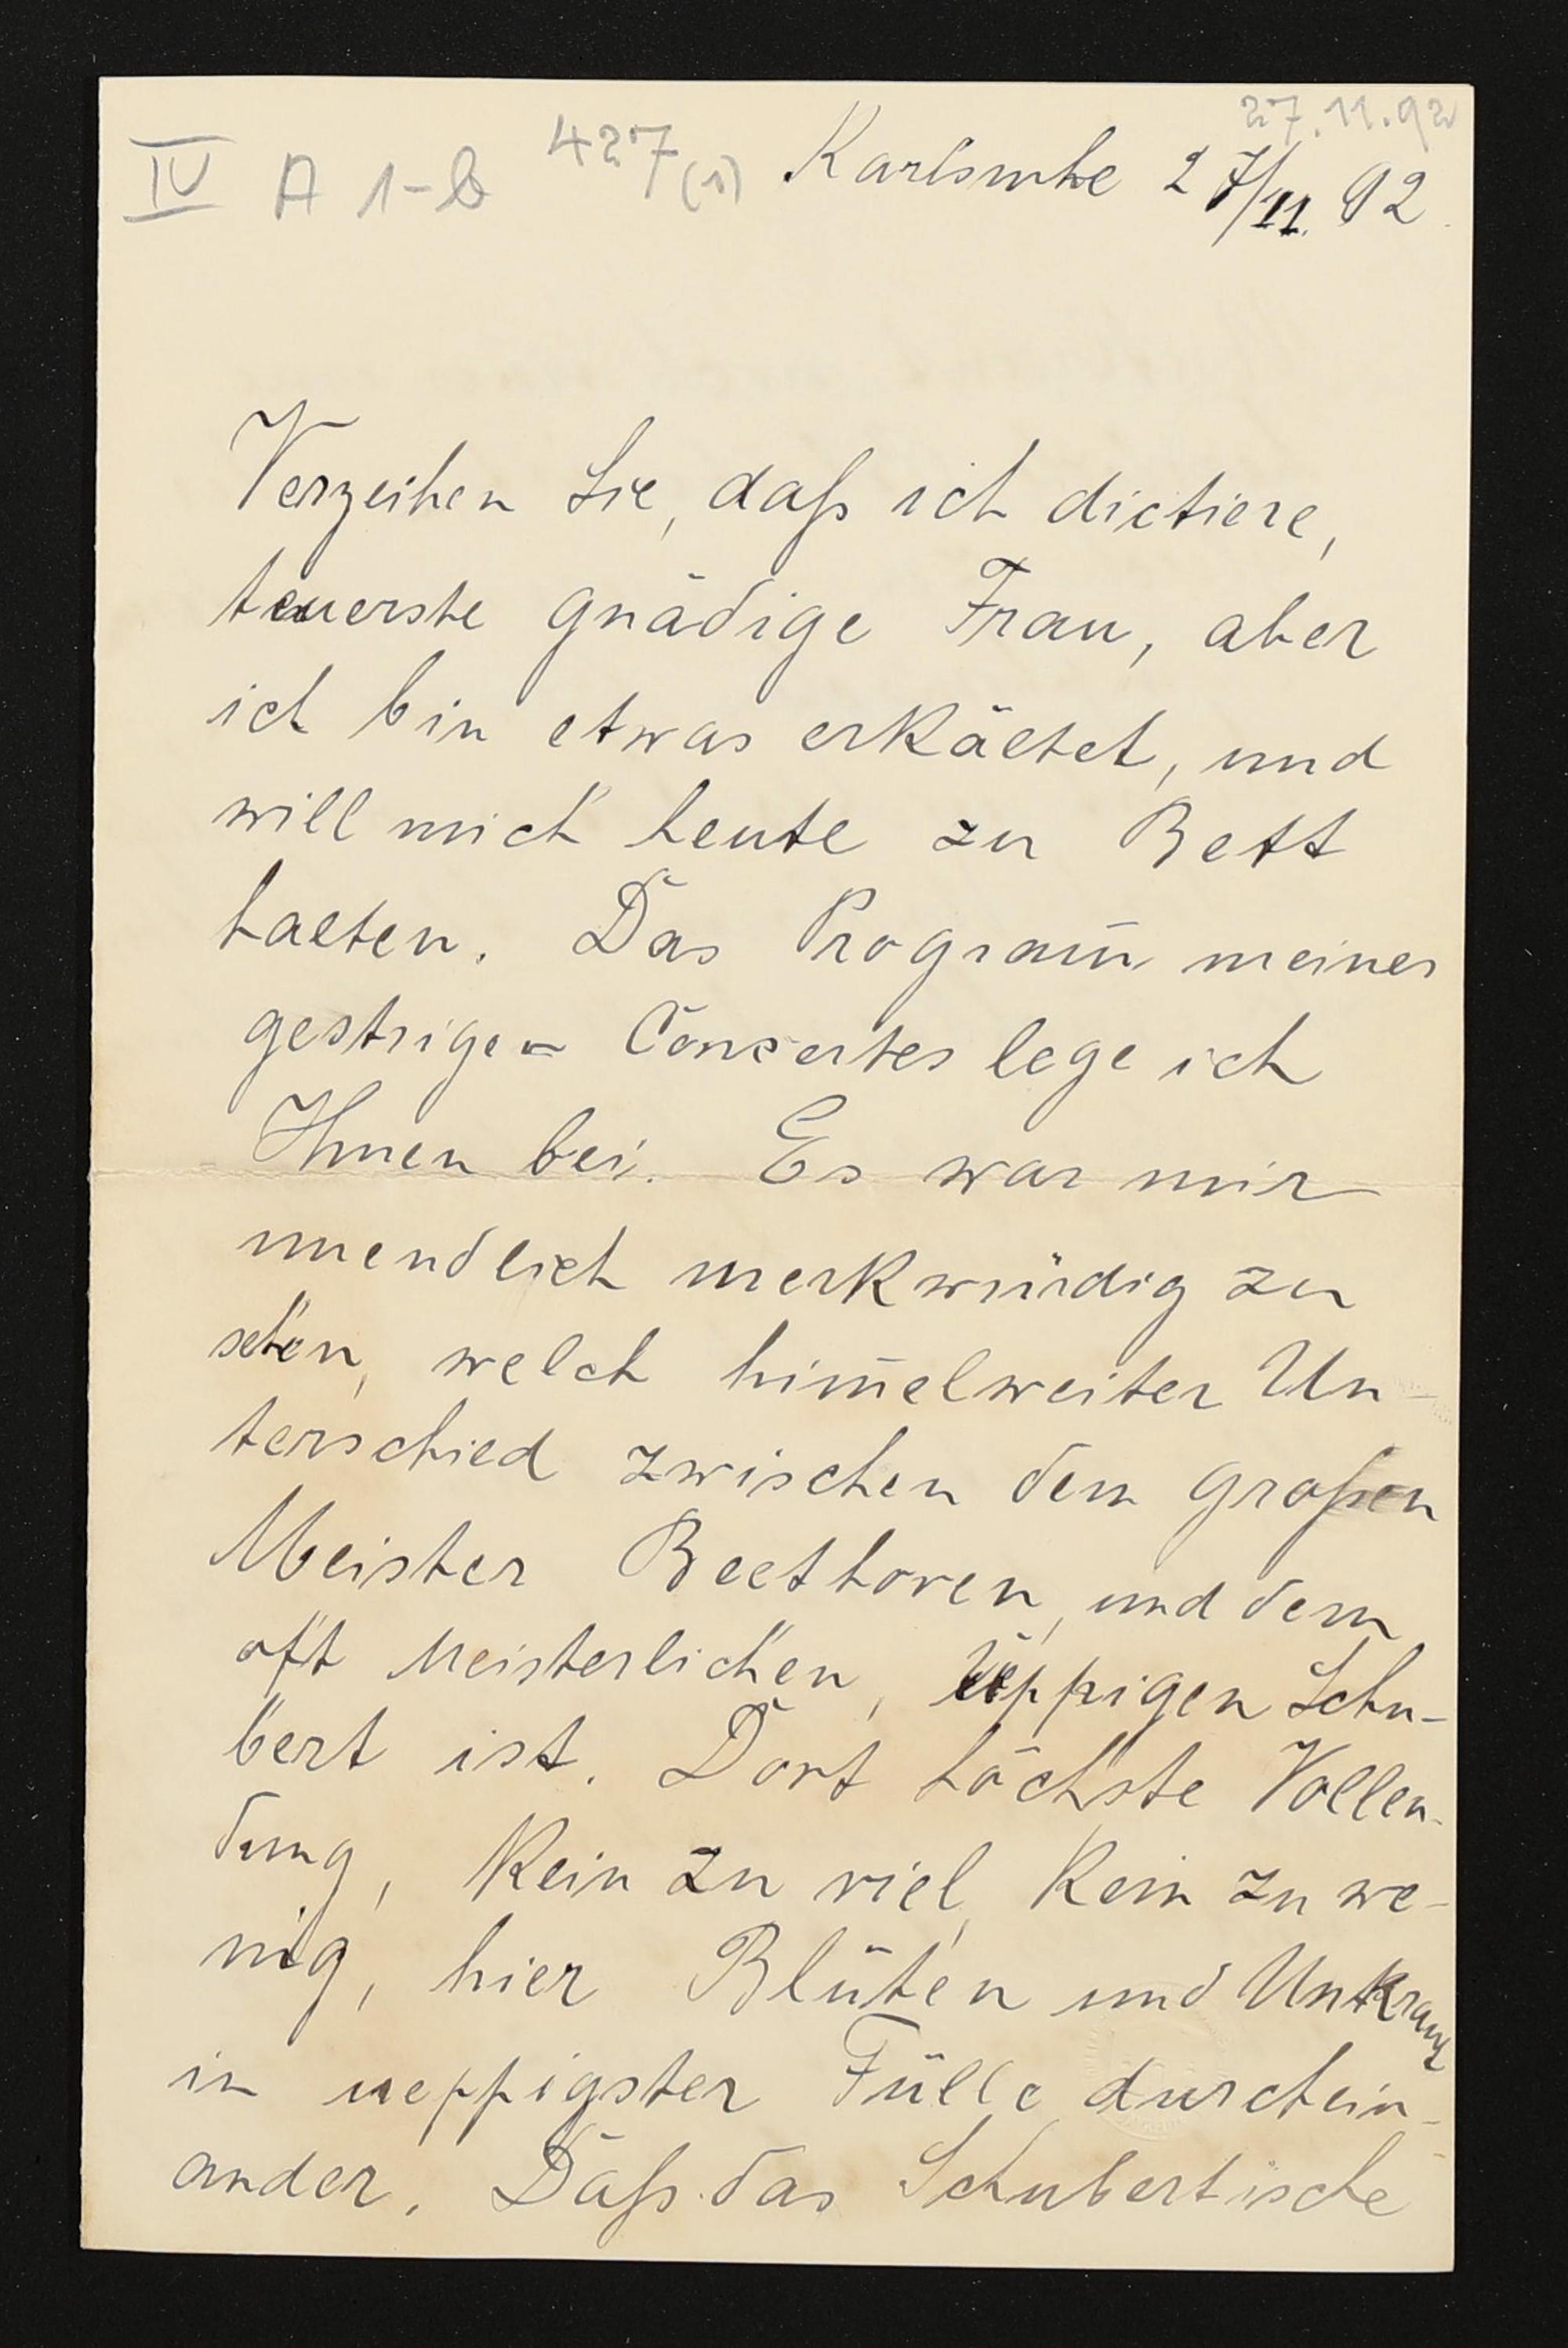 27.11.92
IV A 1-b 427(1) Karlsruhe 27/11. 92.
Verzeihen Sie, daß ich dictiere,
teuerste gnädige Frau, aber
ich bin etwas erkältet, und
will mich heute zu Bett
halten. Das Program̅ meines
gestrigen Concertes lege ich
Ihnen bei. Es war mir
unendlich merkwürdig zu
sehen, welch him̅elweiter Un-
terschied zwischen dem großen
Meister Beethoven, und dem
oft meisterlichen, üppigen Schu-
bert ist. Dort höchste Vollen-
dung, kein zu viel, kein zu we-
nig, hier Blüten und Unkraut
in ueppigster Fülle durchein-
ander. Daß das Schubertische